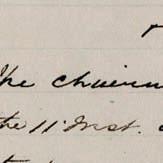 The chairm
the 11 Inst.